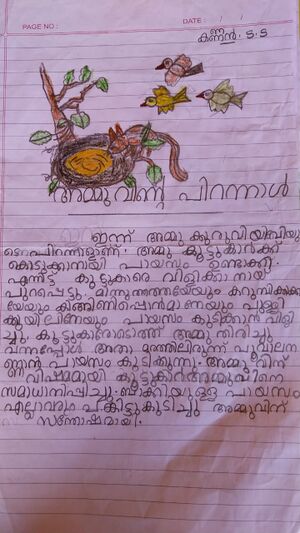 PAGE NO :
DATE : / /
കണ്ണൻ. S. S
അമ്മുവിന്റെ പിറന്നാൾ
ഇന്ന് അമ്മു ക്കുരുവിയുടെ
പിറന്നാളാണ്. അമ്മു കൂട്ടുകാർക്ക്
കൊടുക്കാനായി പായസം ഉണ്ടാക്കി.
എന്നിട്ട് കൂട്ടുകാരെ വിളിക്കാനായ്
പുറപ്പെട്ടു. മിന്നുതത്തയേയും
യേയും കിങ്ങിണിപ്പൊൻമാനേയും പുള്ളി
ക്കുയിലിനേയും പായസം കുടിക്കാൻ വിളി
ച്ചു. കൂട്ടുകാരോടൊത്ത് അമ്മു തിരിച്ചു
വന്നപ്പോൾ അതാ മരത്തിലിരുന്ന് പൂവാലന
ണ്ണാൻ പായസം കുടിക്കുന്നു. അമ്മുവിന്
വിഷമമായി കൂട്ടുകാർ അമ്മുവിനെ
സമാധാനിപ്പിച്ചു. ബാക്കിയുള്ള പായസം
എല്ലാവരും പങ്കിട്ടുകുടിച്ചു അമ്മുവിന്
സന്തോഷമായി.